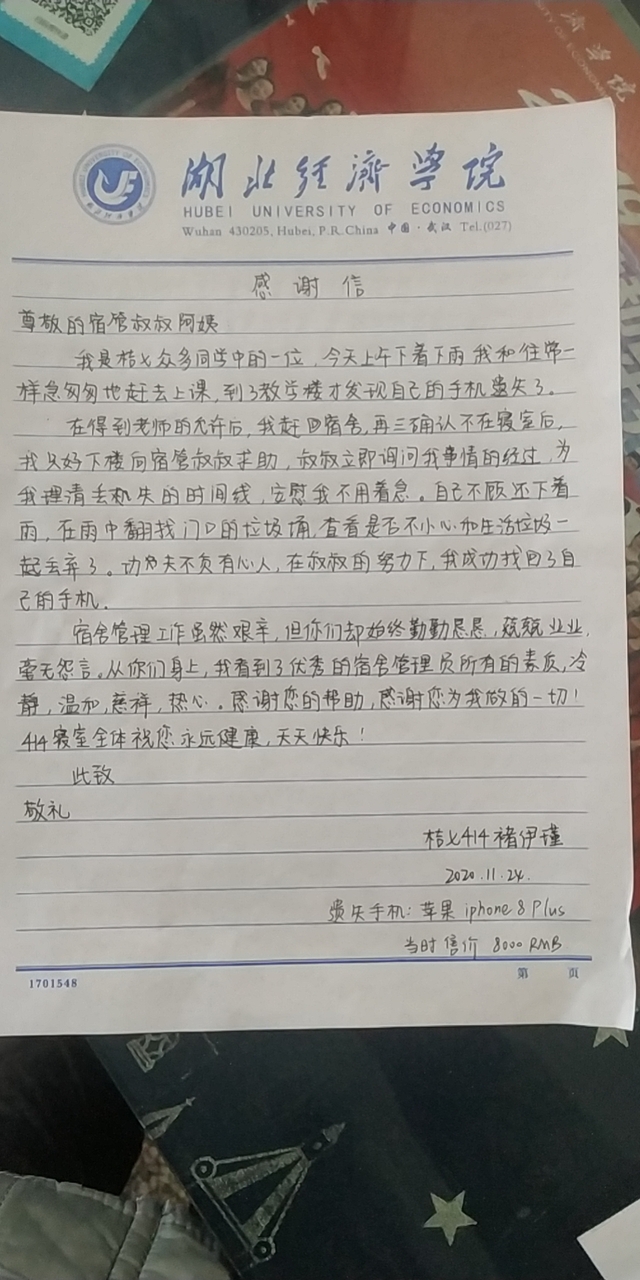 濟學院
湖北经濟学院
HUBEI UNIVERSITY OF ECONOMICS
Wuhan 430205, Hubei, P.R.China 中国·武汉 Tel.(027)
感谢信
尊敬的宿管叔叔阿姨
我是桔七众多同学中的一位，今天上午下着下雨 我和往常一
样急匆匆地赶去上课，到了教学楼才发现自己的手机遗失了。
在得到老师的允许后，我赶回宿舍，再三确认不在寝室后，
我只好下楼向宿管叔叔求助，叔叔立即询问我事情的经过，为
我理清丢机失的时间线，安慰我不用着急。自己不顾还下着
雨，在雨中翻找门口的垃圾桶，查看是否不小心和生活垃圾一
起丢弃了。功夫不负有心人，在叔叔的努力下，我成功找回了自
己的手机.
宿舍管理工作虽然艰辛，但你们却始终勤勤恳恳，兢兢业业，
毫无怨言。从你们身上，我看到了优秀的宿舍管理员所有的素质，冷
静，温和，慈祥，热心。感谢您的帮助，感谢您为我做的一切！
414寝室全体祝您永远健康，天天快乐！
此致
敬礼
桔七414 褚伊瑾
2020.11.24.
遗失手机：苹果 iphone 8 Plus
当时售价 8000 RMB
1701548
第 页